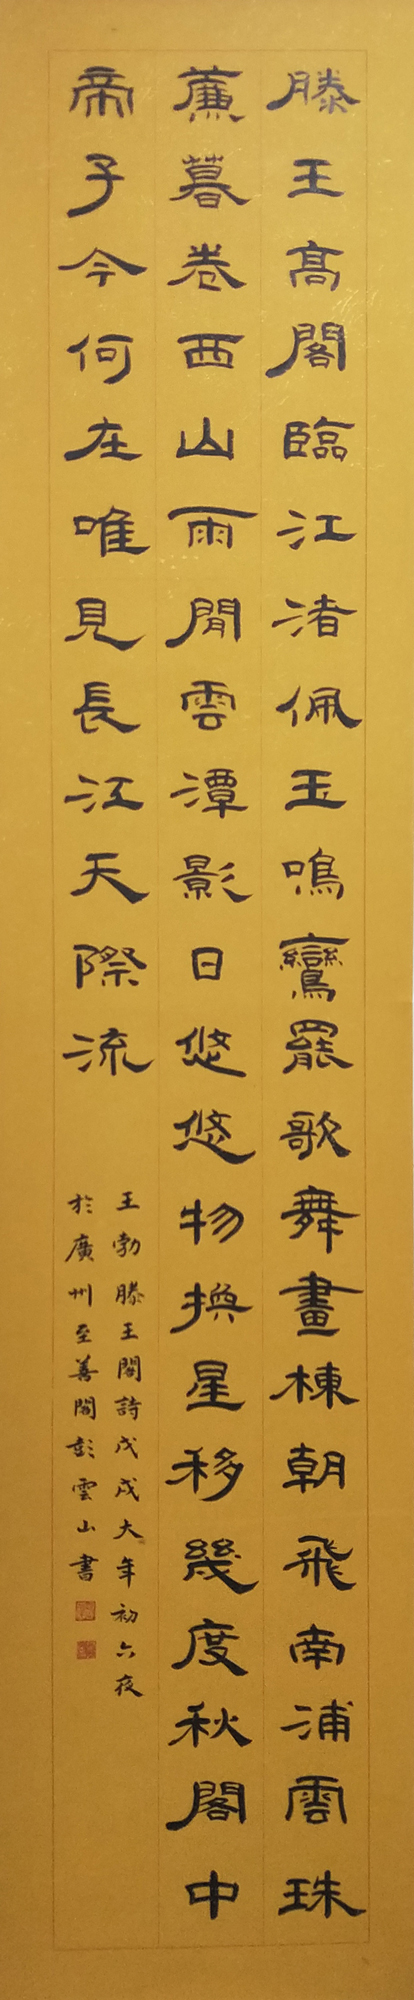 滕王高閣臨江渚佩玉鳴鸞罷歌舞畫棟朝飛南浦雲珠
簾暮卷西山雨閒雲潭影日悠悠物換星移幾度秋閣中
帝子今何在唯見長江天際流
王勃滕王閣詩戊戌大年初六夜
於廣州至善閣彭雲山書